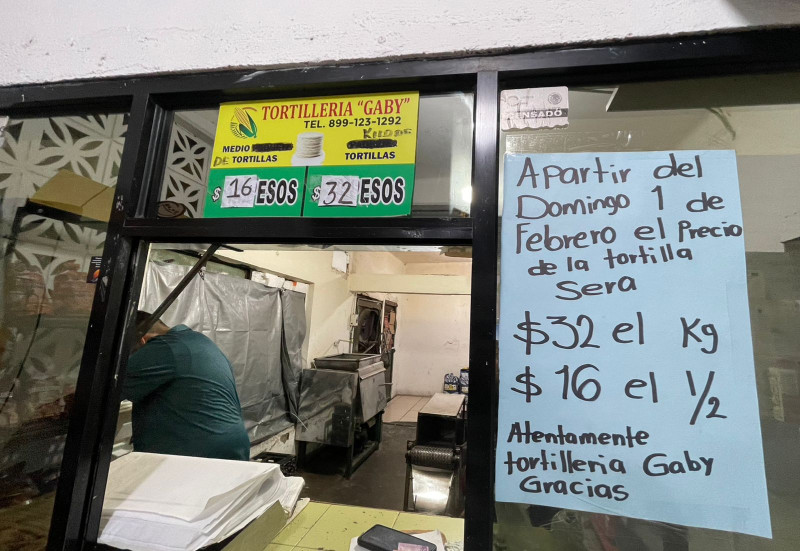 TORTILLERIA "GABY"
TEL. 899-123-1292
MEDIO
DE TORTILLAS
KILO DE
TORTILLAS
$16 PESOS
$32 PESOS
CENSADO
Apartir del
Domingo 1 de
Febrero el Precio
de la tortilla
Sera
$32 el Kg
$16 el 1/2
Atentamente
tortilleria Gaby
Gracias